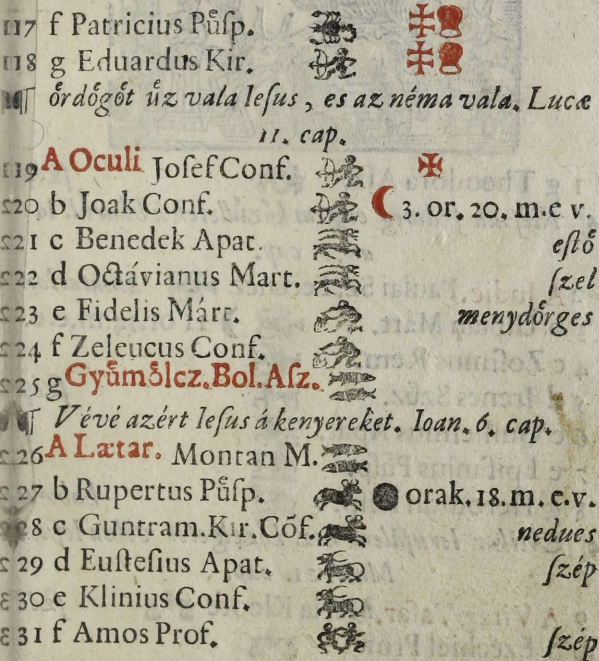 17 f Patricius Půſp.
18 g Eduardus Kir.
¶ ŏrdŏgŏt ůz vala Ieſus, es az néma vala. Lucæ
11. cap.
19 A Oculi Joſef Conf.
20 b Joak Conf. ☾ 3. or. 20. m. e v.
21 c Benedek Apat. eſtŏ
22 d Octávianus Mart. ſzel
23 e Fidelis Márt. menydŏrges
24 f Zeleucus Conf.
25 g Gyůmŏlcz. Bol. Aſz.
¶ Vévé azért Ieſus á kenyereket. Ioan. 6. cap.
26 A Lætar. Montan M.
27 b Rupertus Půſp. ● orak. 18. m. e. v.
28 c Guntram. Kir. Cõf. nedues
29 d Euſteſius Apat. ſzép
30 e Klinius Conf.
31 f Amos Prof. ſzép